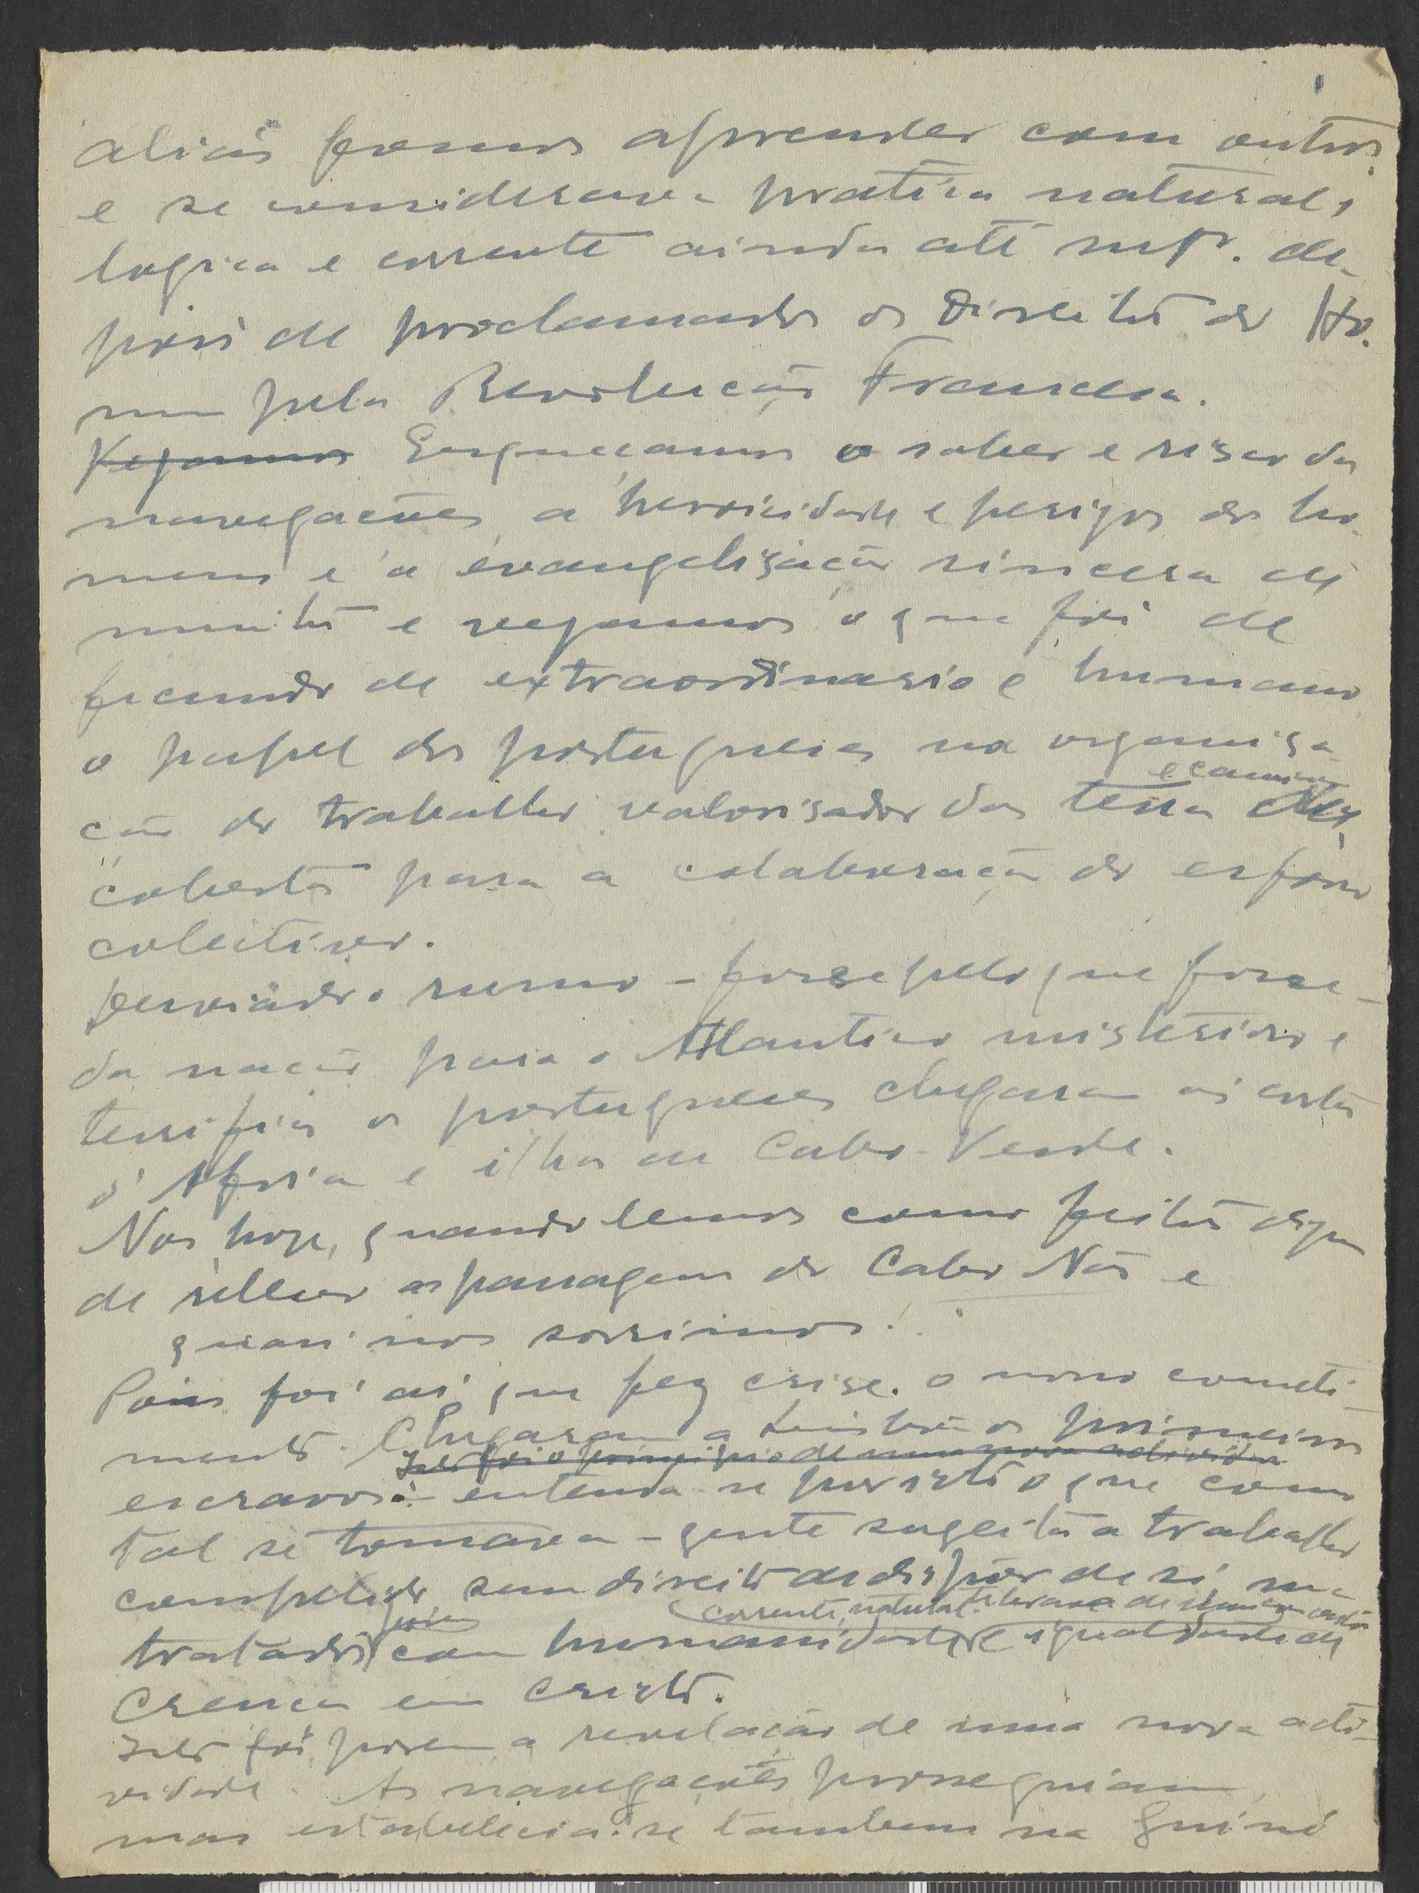 aliás fomos aprender com outros
e se considerava pratica natural,
logica e corrente ainda até mto. de-
pois de proclamados os Direitos do Ho-
mem pela Revolução Francesa.
Vejamos Esqueçamos o saber e risco das
navegações a heroicidade e perigos dos ho-
mens e a evangelisação sincera de
muitos e vejamos o que foi de
fecundo de extraordinario e humano
o papel dos portugueses na organisa-
e caminho
ção do trabalho valorisador das terras des-
cobertas para a colaboração do esforço
colectivo.
Desviado o rumo - fosse pelo que fosse -
da nação para o Atlantico misterioso e
terrifico os portugueses chegaram ás costas
d'Africa e ilhas de Cabo-Verde.
Nos hoje, quando lemos como feitos dignos
de relevo as passagens do Cabo Não e
quasi nos sorrimos!
Pois foi ai que fez crise o nosso cometi-
mento. Chegaram a Lisboa os primeiros
Isto foi o principio de uma nova actividade
escravos: entenda-se por isto o que como
tal se tomava - gente sugeita a trabalho
compelido sem direito de dispor de si, mas
corrente, natural
tratados porem com humanidade e igualdade de
crença em Cristo.
Isto foi porem a revelação de uma nova acti-
vidade. As navegações prosseguiam
mas estabelecia-se tambem na Guiné